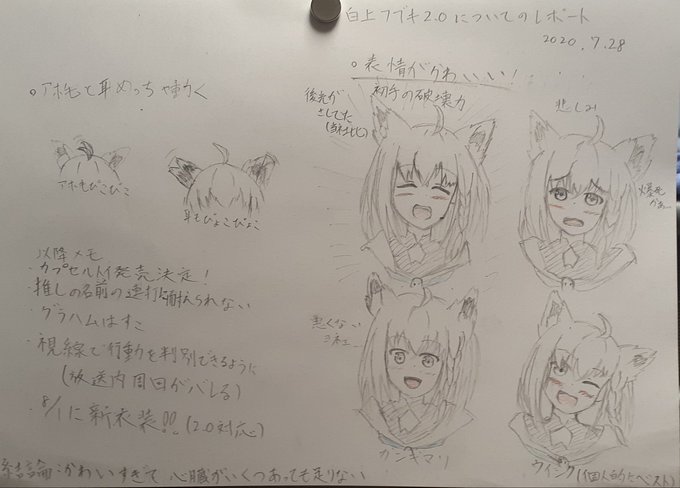 白上フブキ2.0についてのレポート
2020.7.28
○アホ毛と耳めっちゃ動く
アホ毛ぴこぴこ
耳もぴょこぴょこ
以降メモ
・カプセルトイ発売決定!
・推しの名前の連打に耐えられない
・グラハムはすこ
・視線で行動を判別できるように
(放送内周回がバレる)
・8/1に新衣装!!(2.0対応)
○表情がかわいい!
初手の破壊力
後光が
さしてた
(当社比)
悲しみ
爆死
かぁ…
悪くない
ガンギマリ
ウィンク(個人的にベスト)
結論:かわいすぎて 心臓がいくつあっても足りない